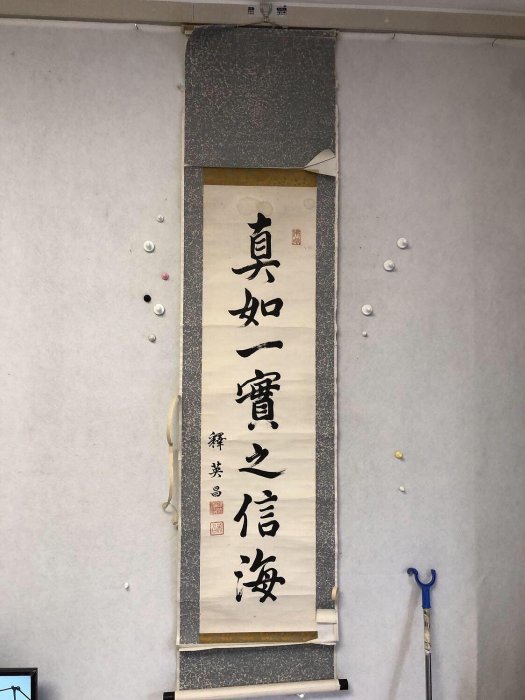 真如一實之信海
釋英昌